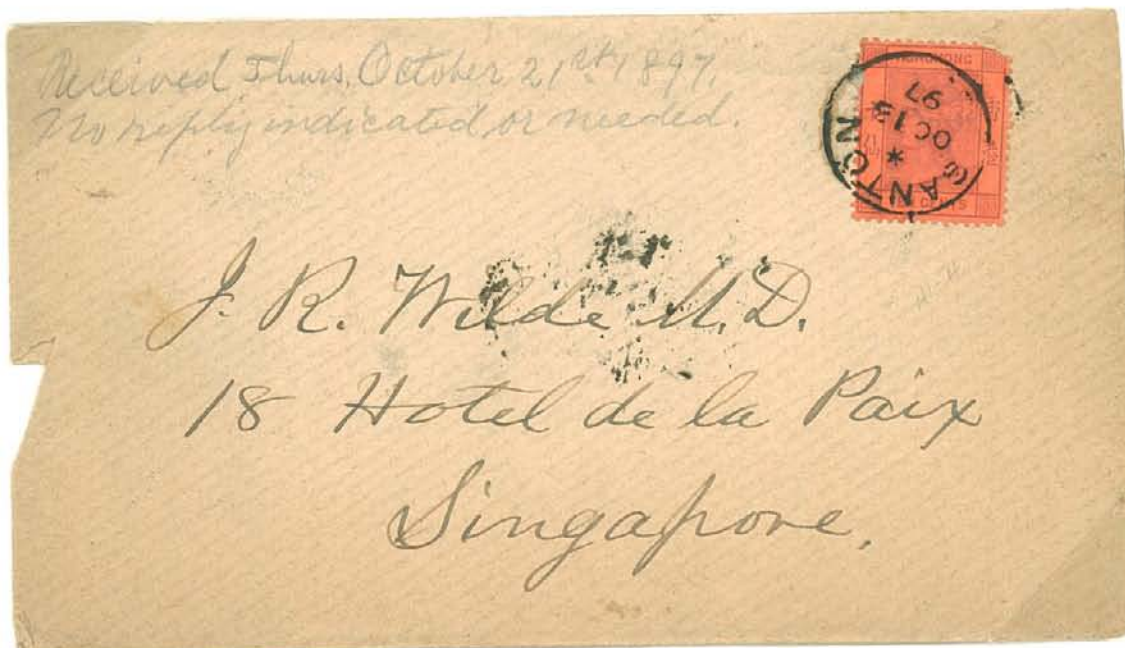 Received Thurs, October 21st 1897.
No reply indicated or needed.
HONG KONG
CANTON
*
OC 13
97
CENTS
J. R. Wilde M.D.
18 Hotel de la Paix
Singapore.